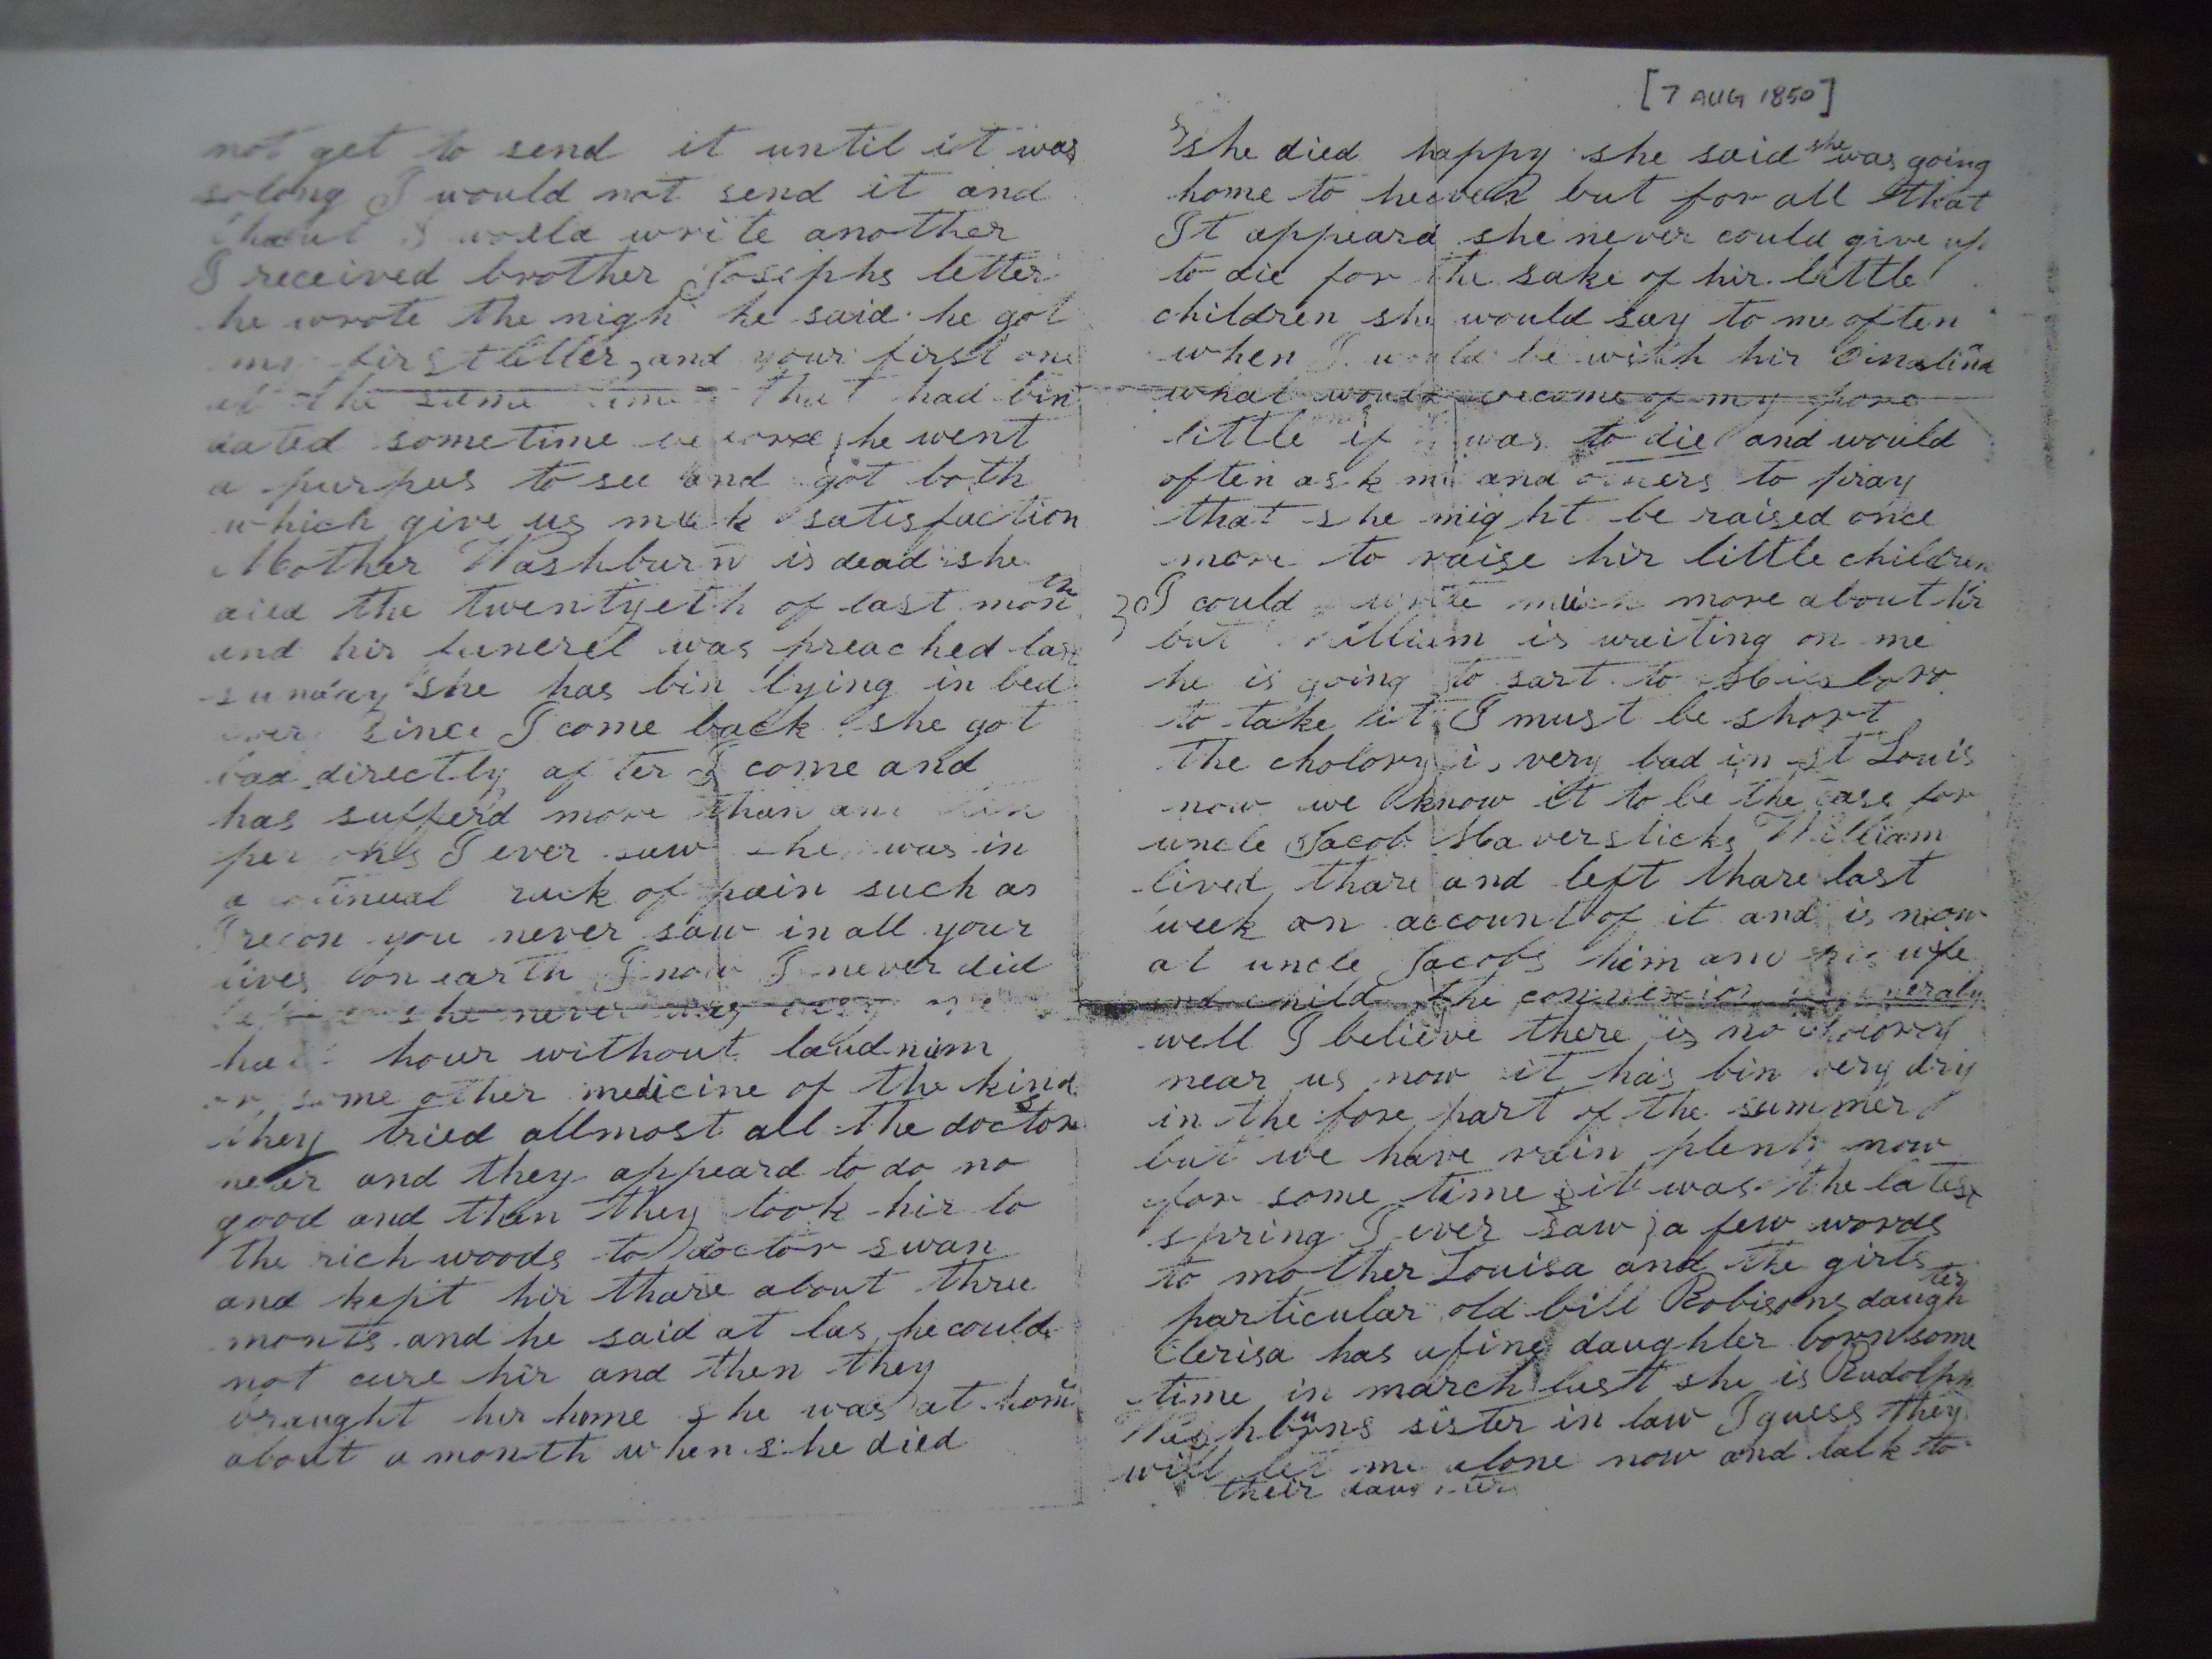 not get to send it until it was
so long I would not send it and
I would write another
I received brother Josiphs letter
he wrote the nigh he said he got
my first letter, and your first one
at the same time that had bin
dated sometime before, he went
a purpus to see and got both
which give us much satisfaction
Mother Washburn is dead she
died the twentyeth of last month
and hir funerel was preached last
sunday she has bin lying in bed
ever since I come back she got
bad directly after I come and
has sufferd more than any
persons I ever saw she was in
a continual rack of pain such as
I recon you never saw in all your
lives on earth I now I never did
she never was easy
half hour without laudnum
or some other medicine of the kind
they tried allmost all the doctors
near and they appeard to do no
good and then they took hir to
the rich woods to doctor swan
and kept hir thare about three
monts and he said at las he could
not cure hir and then they
braught hir home she was at home
about a month when she died
[7 AUG 1850]
she died happy she said she was going
home to heaven but for all that
It appeard she never could give up
to die for the sake of hir little
children she would say to me often
when I would be with hir
what would become of my pore
little if I was to die and would
often ask me and others to pray
that she might be raised once
more to raise hir little children
I could write much more about hir
but William is waiting on me
he is going to sart to
to take it I must be short
The cholory is very bad in St Louis
now we know it to be the case for
uncle Jacob Haversticks William
lived thare and left thare last
week on account of it and is now
at uncle Jacobs him and his wife
and child the connexion is generaly
well I believe there is no cholory
near us now it has bin very dry
in the fore part of the summer
but we have rain plenty now
for some time it was the latest
spring I ever saw, a few words
to mother Louisa and the girls
particular old bill Robisons daughter
Clerisa has a fine daughter born some
time in march last she is Rudolph
Washburns sister in law I guess they
will let me alone now and talk to
their daughter